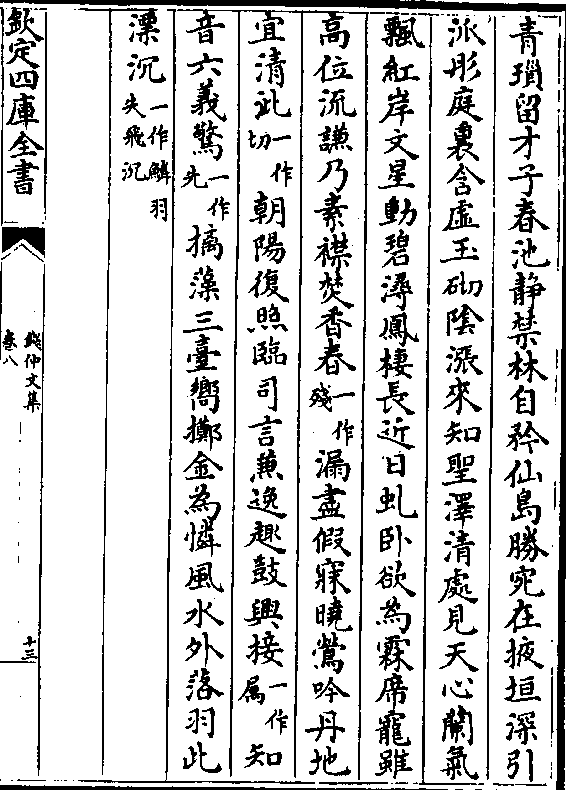 青瑣留才子春池静禁林自矜仙島勝宛在掖垣深引
派彤庭裏含虚玉砌陰漲來知聖澤清處見天心蘭氣
飄紅岸文星動碧潯鳳棲長近日虬卧欲為霖席寵雖
高位流謙乃素襟焚香春一作殘漏盡假寐曉鶯吟丹地
宜清泚一作切朝陽復照臨司言兼逸趣鼓興接一作属知
音六義驚一作先摛藻三臺嚮擲金為憐風水外落羽此
漂沉一作鱗羽失飛沉
欽定四庫全書
錢仲文集
卷八
十三